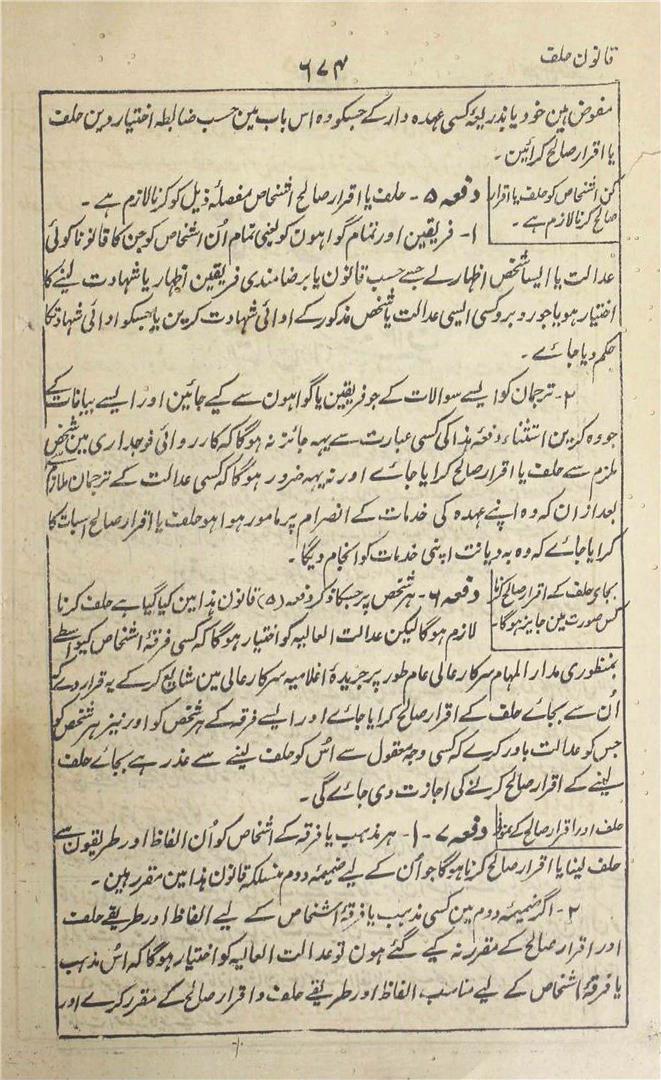 قانون حلف
۶۷۴
مفوض ہین خود یا بذریعہ کسی عہدہ دار کے جسکو وہ اس باب مین حسب ضابطہ اختیار دین حلف
یا اقرار صالح کرائین۔
کن اشخاص کو حلف یا اقرار
صالح کرنا لازم ہے۔
دفعہ ۵ - حلف یا اقرار صالح اشخاص مفصلۂ ذیل کو کرنا لازم ہے۔
۱- فریقین اور تمام گواہون کو یعنی تمام اُن اشخاص کو جن کا قانوناً کوئی
عدالت یا ایسا شخص اظہار لے جسے حسب قانون یا برضامندی فریقین اظہار یا شہادت لینے کا
اختیار ہو یا جو روبرو کسی ایسی عدالت یا شخص مذکور کے ادائی شہادت کرین یا جسکو ادائی شہادت کا
حکم دیا جائے۔
۲- ترجمان کو ایسے سوالات کے جو فریقین یا گواہون سے کیے جائین اور ایسے بیانات کے
جو وہ کرین استثناء دفعۂ ہذا کی کسی عبارت سے یہہ جائز نہ ہوگا کہ کارروائی فوجداری مین شخص
ملزم سے حلف یا اقرار صالح کرایا جائے اور نہ یہہ ضرور ہوگا کہ کسی عدالت کے ترجمان ملازم کو
بعد ازان کہ وہ اپنے عہدہ کی خدمات کے انصرام پر مامور ہوا ہو حلف یا اقرار صالح اسبات کا
کرایا جائے کہ وہ بہ دیانت اپنی خدمات کو انجام دیگا۔
بجای حلف کے اقرار صالح کرنا
کس صورت مین جایز ہوگا۔
دفعہ ۶ - ہر شخص پر جسکا ذکر دفعہ (۵) قانون ہذا مین کیا گیا ہے حلف کرنا
لازم ہوگا لیکن عدالت العالیہ کو اختیار ہوگا کہ کسی فرقۂ اشخاص کیواسطے
بمنظوری مدار المہام سرکار عالی عام طور پر جریدۂ اعلامیہ سرکار عالی مین شایع کرکے یہ قرار دے کہ
اُن سے بجائے حلف کے اقرار صالح کرایا جائے اور ایسے فرقہ کے ہر شخص کو اور نیز ہر شخص کو
جس کو عدالت باور کرے کہ کسی وجہ معقول سے اُس کو حلف لینے سے عذر ہے بجائے حلف
لینے کے اقرار صالح کرنے کی اجازت دی جائے گی۔
حلف اور اقرار صالح کے
دفعہ ۷ - ۱- ہر مذہب یا فرقہ کے اشخاص کو اُن الفاظ اور طریقون سے
حلف لینا یا اقرار صالح کرنا ہوگا جو اُن کے لیے ضمیمۂ دوم منسلکہ قانون ہذا مین مقرر ہین۔
۲- اگر ضمیمۂ دوم مین کسی مذہب یا فرقۂ اشخاص کے لیے الفاظ اور طریقے حلف
اور اقرار صالح کے مقرر نہ کیے گئے ہون تو عدالت العالیہ کو اختیار ہوگا کہ اُس مذہب
یا فرقۂ اشخاص کے لیے مناسب الفاظ اور طریقے حلف و اقرار صالح کے مقرر کرے اور